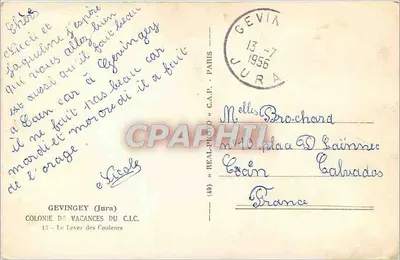 Chères
Nicole et
Jaqueline j'espère
que vous allez bien
est aussi qu'il fait beau
a Caen car à Gevingey
il ne fait pas beau car
mardi et mercredi il a fait
de l'orage
Nicole
GEVINGEY (Jura)
COLONIE DE VACANCES DU C.I.C.
13 - Le Lever des Couleurs
(49) * REAL-PHOTO * C.A.P. - PARIS
GEVIN
13 -7
1956
JURA
Melles Brochard
n°10 place D Laënnec
Caen Calvados
France
CPAPHIL